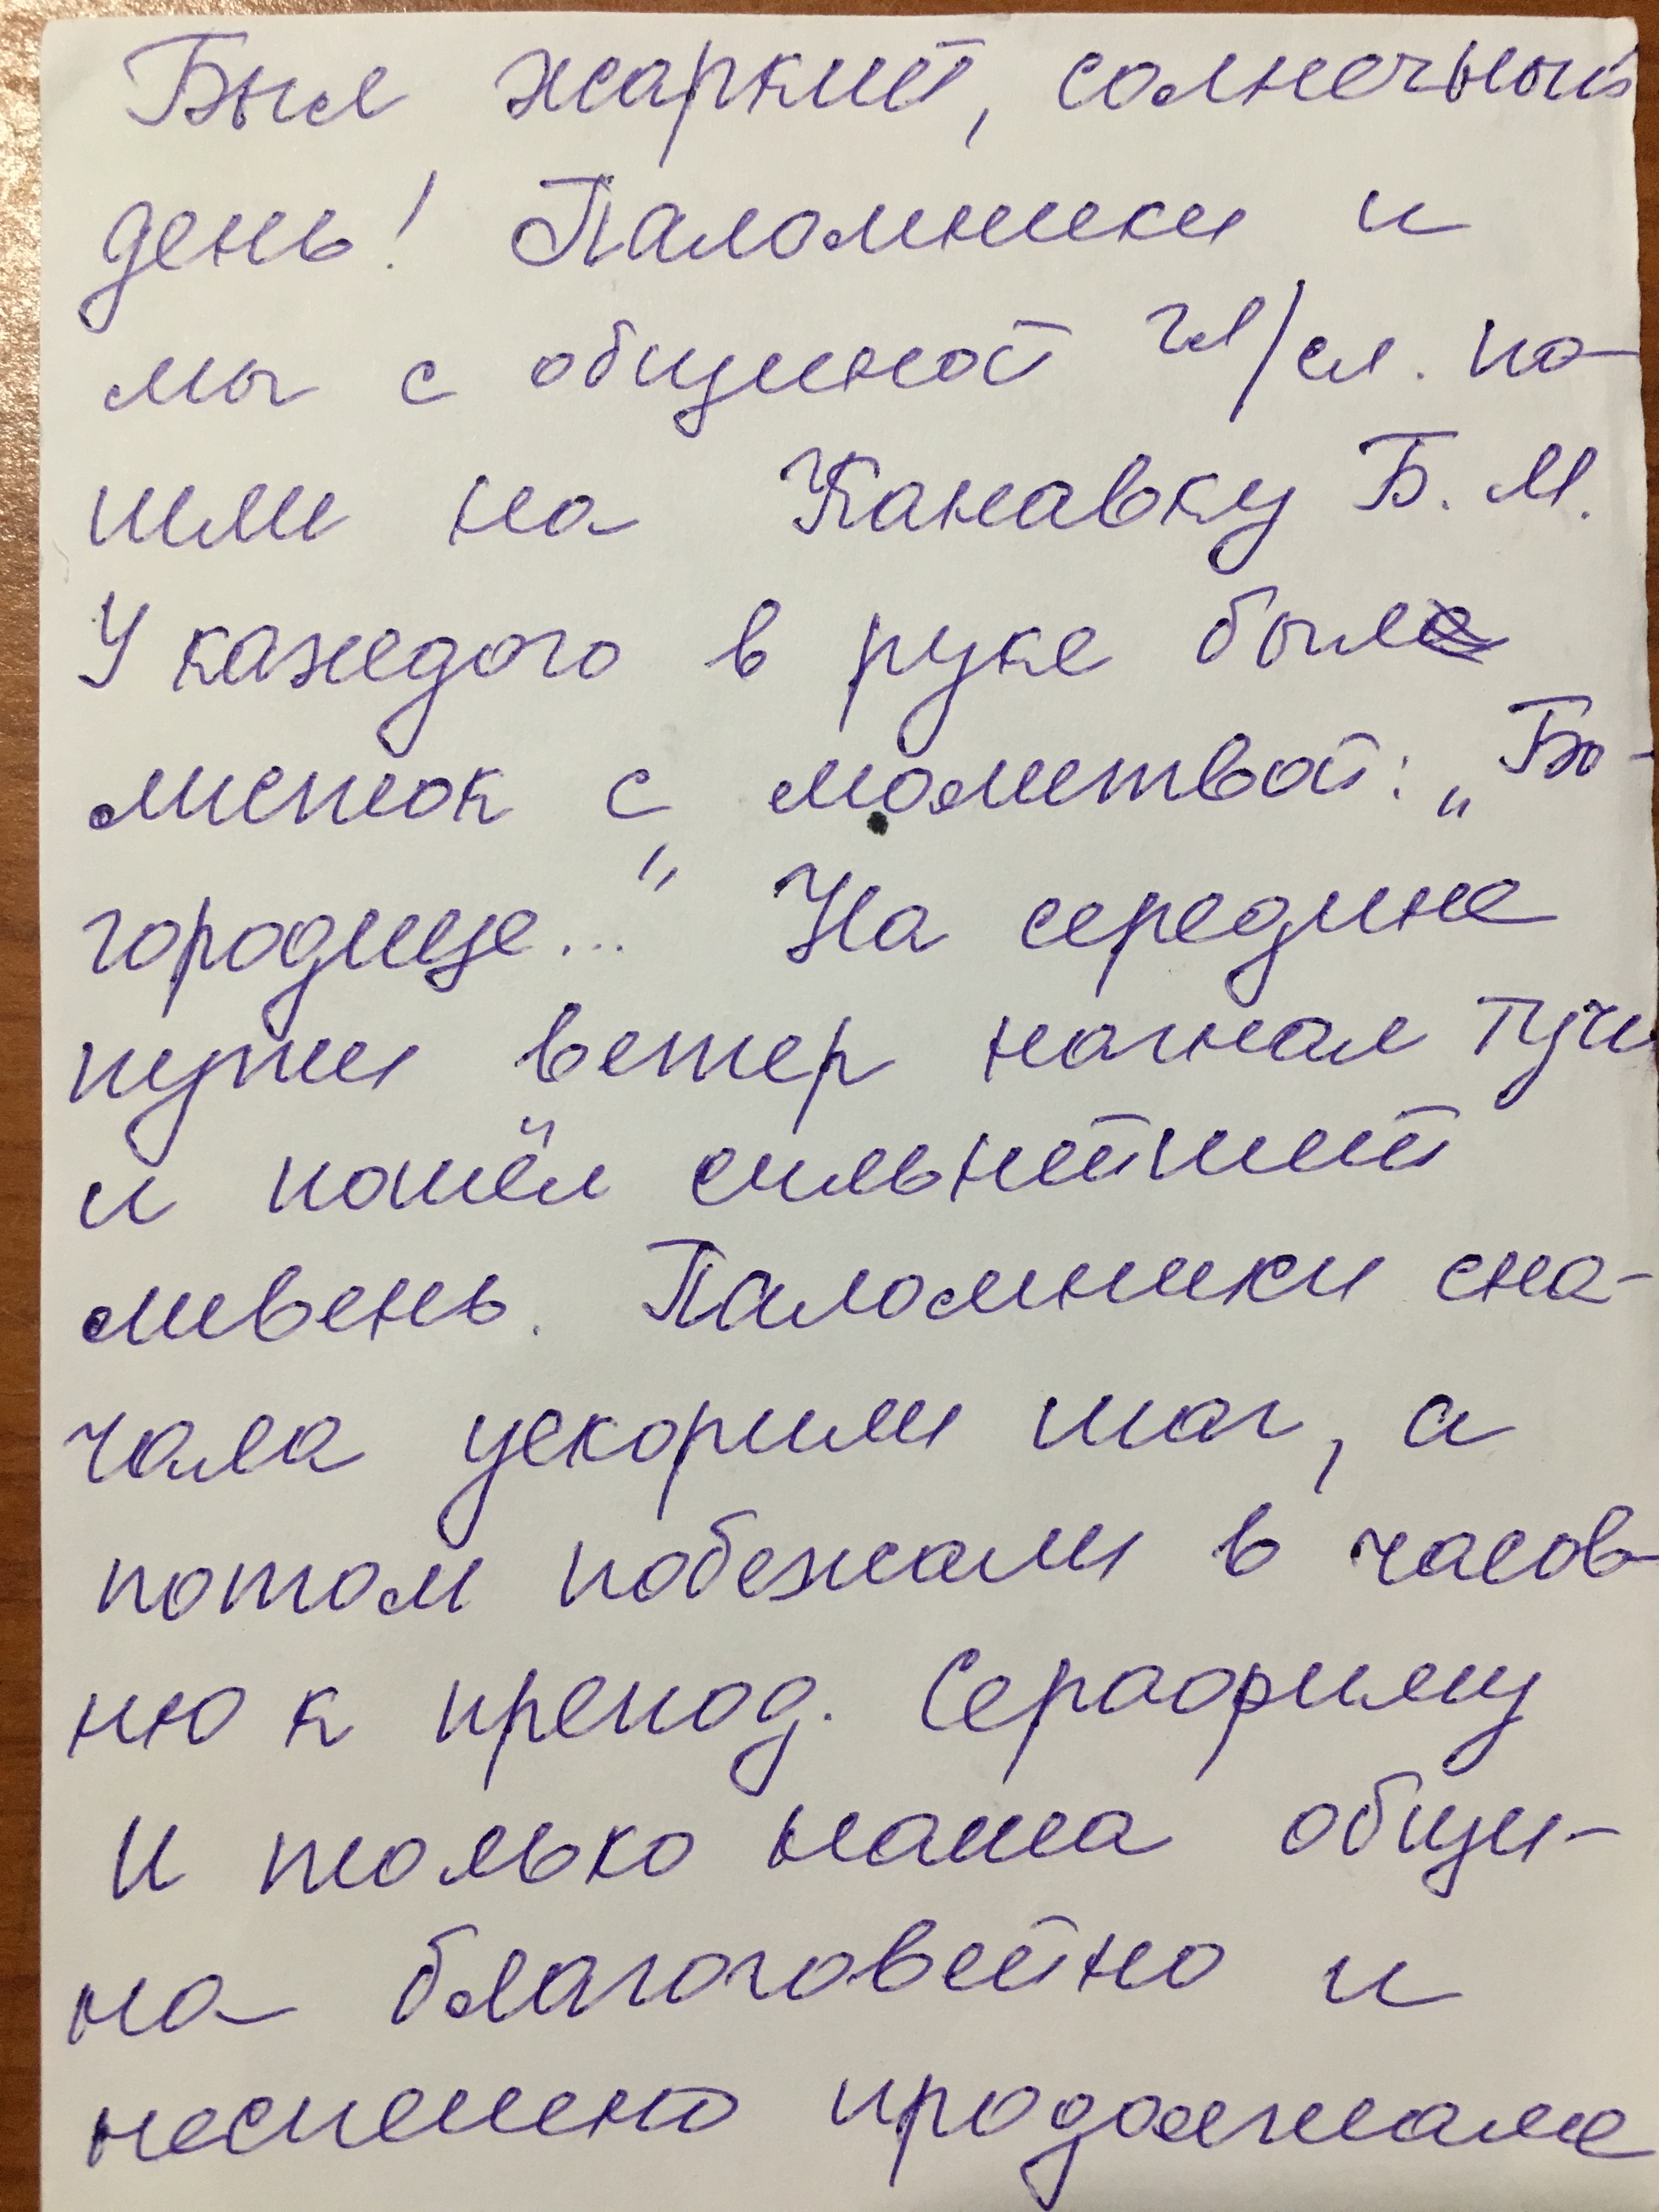 Был жаркий, солнечный
день! Паломники и
мы с общиной гл/сл. по-
шли на Канавку Б. М.
У каждого в руке был
листок с молитвой: „Бо-
городице..." На середине
пути ветер нагнал тучи
и пошёл сильнейший
ливень. Паломники сна-
чала ускорили шаг, а
потом побежали в часов-
ню к препод. Серафиму
И только наша общи-
на благоговейно и
неспешно продолжала